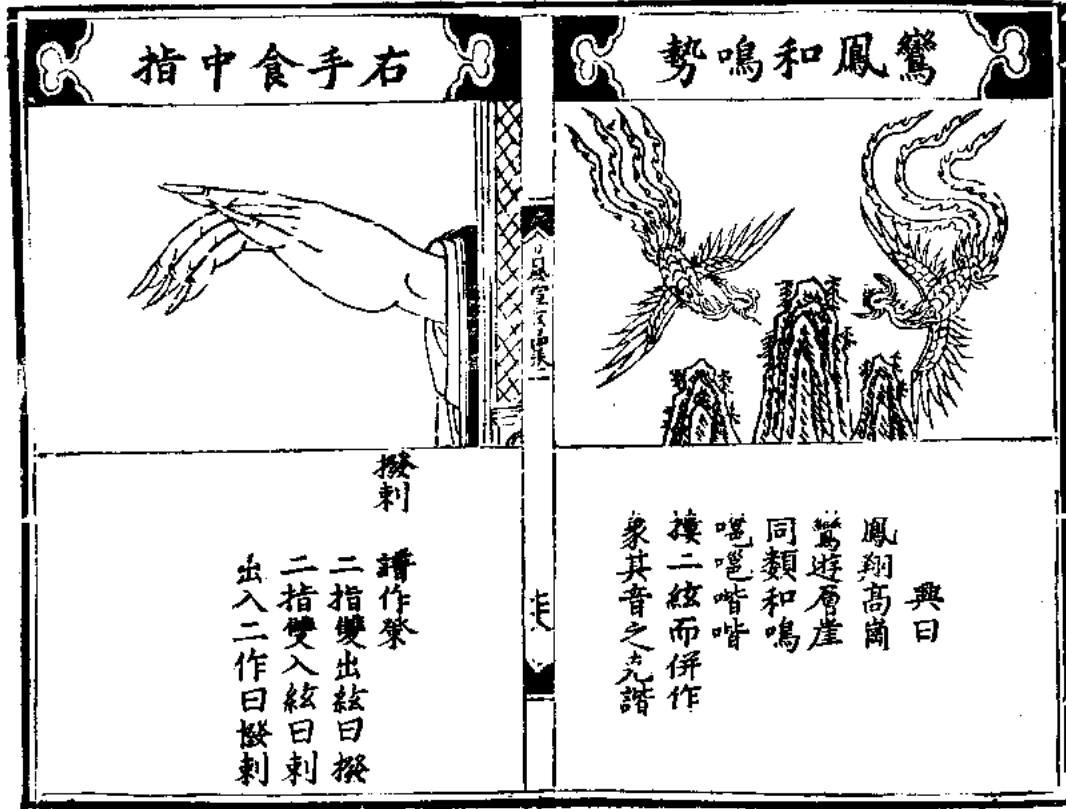 鸞鳳和鳴勢
興曰
鳳翔高崗
鸞遊層崖
同類和鳴
嗈嗈喈喈
摟二絃而併作
象其音之克諧
右手食中指
撥刺
譜作
二指雙出絃曰撥
二指雙入絃曰刺
出入二作曰撥刺